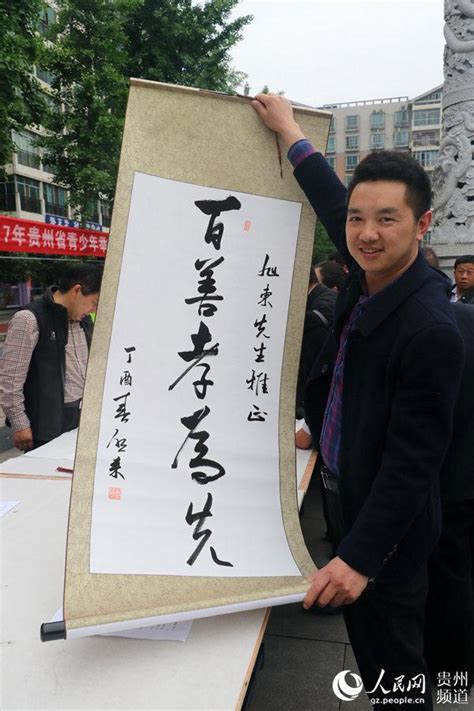 7年贵州省青少年
旭東先生雅正
百善孝為先
丁酉春
人民网
gz.people.cn
贵州
频道